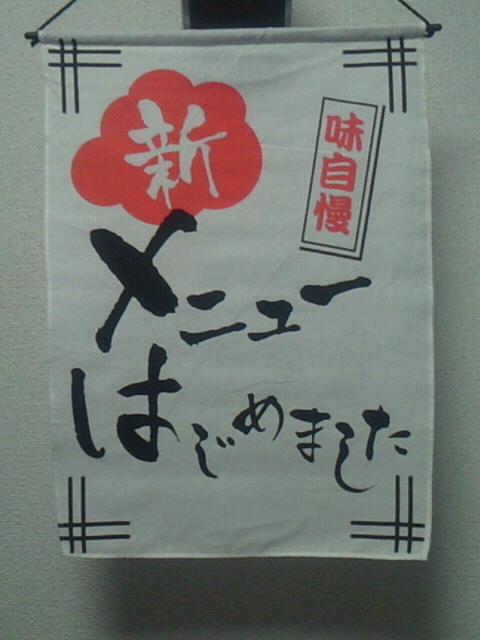 新
味自慢
メニュー
はじめました